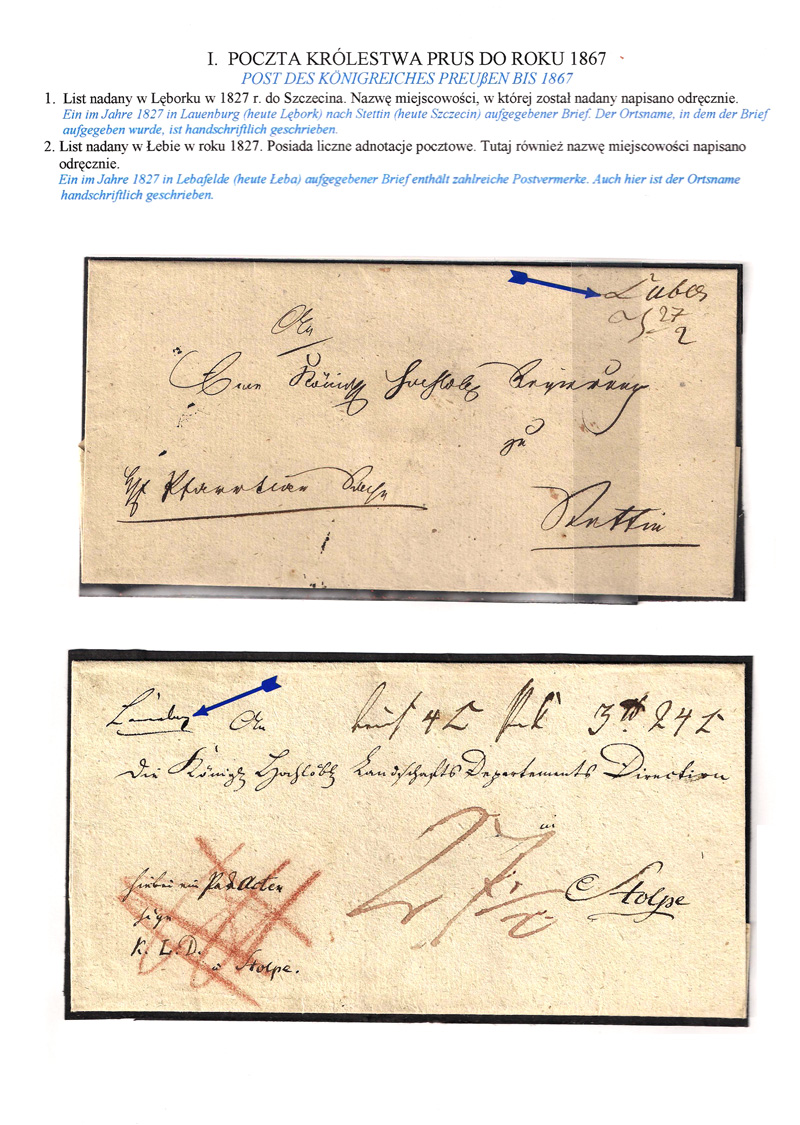 I. POCZTA KRÓLESTWA PRUS DO ROKU 1867
POST DES KÖNIGREICHES PREUßEN BIS 1867
1. List nadany w Lęborku w 1827 r. do Szczecina. Nazwę miejscowości, w której został nadany napisano odręcznie.
Ein im Jahre 1827 in Lauenburg (heute Lębork) nach Stettin (heute Szczecin) aufgegebener Brief. Der Ortsname, in dem der Brief
aufgegeben wurde, ist handschriftlich geschrieben.
2. List nadany w Łebie w roku 1827. Posiada liczne adnotacje pocztowe. Tutaj również nazwę miejscowości napisano
odręcznie.
Ein im Jahre 1827 in Lebafelde (heute Łeba) aufgegebener Brief enthält zahlreiche Postvermerke. Auch hier ist der Ortsname
handschriftlich geschrieben.
27
2
An
Eine Königl Hochlobl Regierung
zu
Pfarrthar Sache
Stettin
An
4 L 3 24 L
Die Königl Hochlöbl Landschafts Departements Direction
in
Stolpe
hiebei ein Pack Acten
K. L. D.
Stolpe.